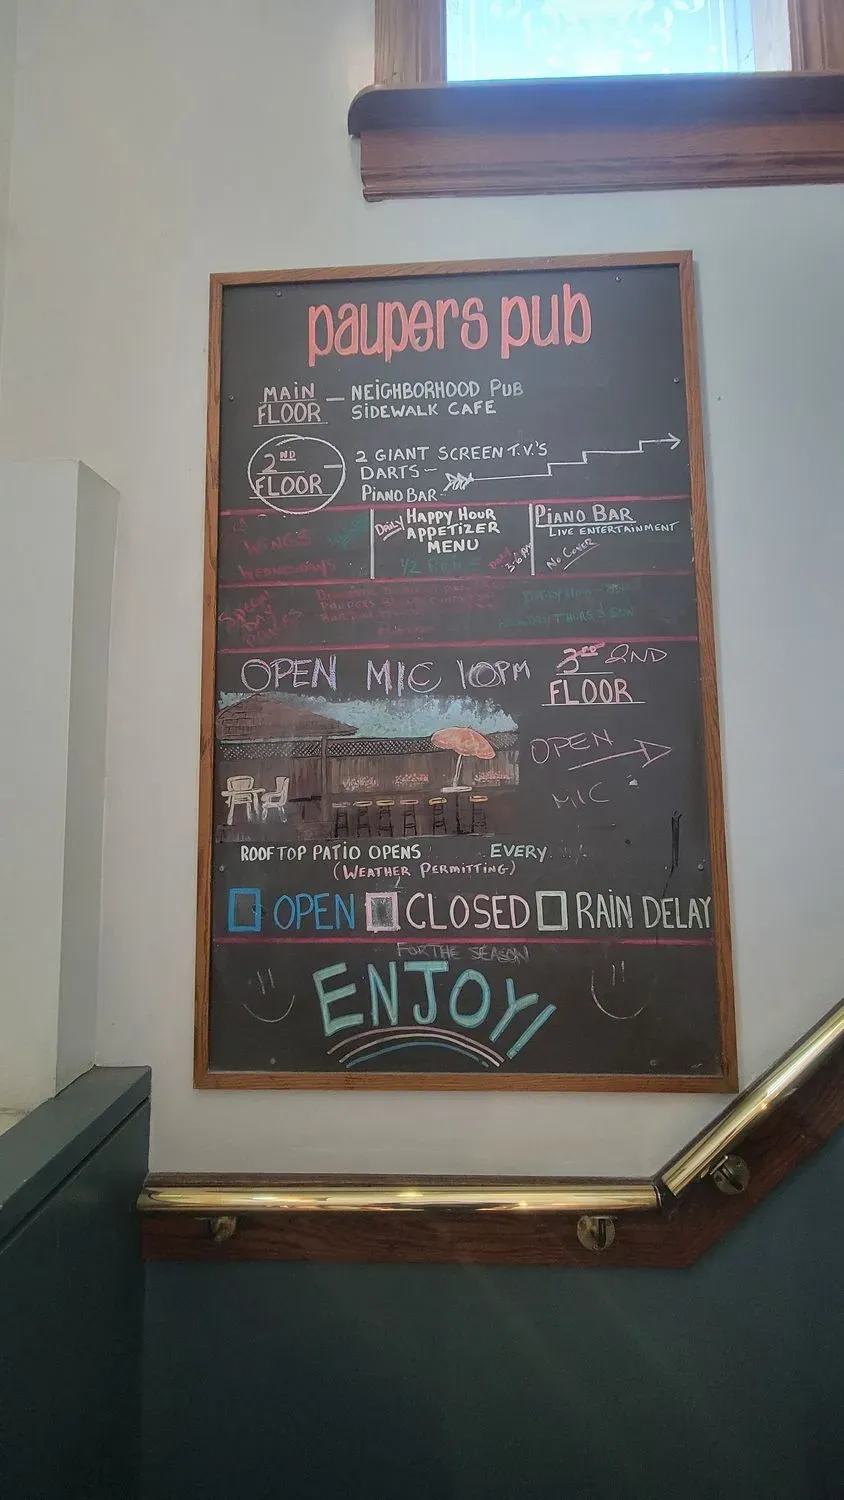 paupers pub
MAIN FLOOR — NEIGHBORHOOD PUB
SIDEWALK CAFE
2ND FLOOR — 2 GIANT SCREEN T.V.'S
DARTS —
PIANO BAR -
WINGS
WEDNESDAYS
DAILY HAPPY HOUR
APPETIZER
MENU
1/2
PIANO BAR
LIVE ENTERTAINMENT
NO COVER
SPECIAL
DAY
OPEN MIC 10PM
3RD 2ND
FLOOR
OPEN
MIC
ROOFTOP PATIO OPENS EVERY
(WEATHER PERMITTING)
OPEN CLOSED RAIN DELAY
FOR THE SEASON
ENJOY!